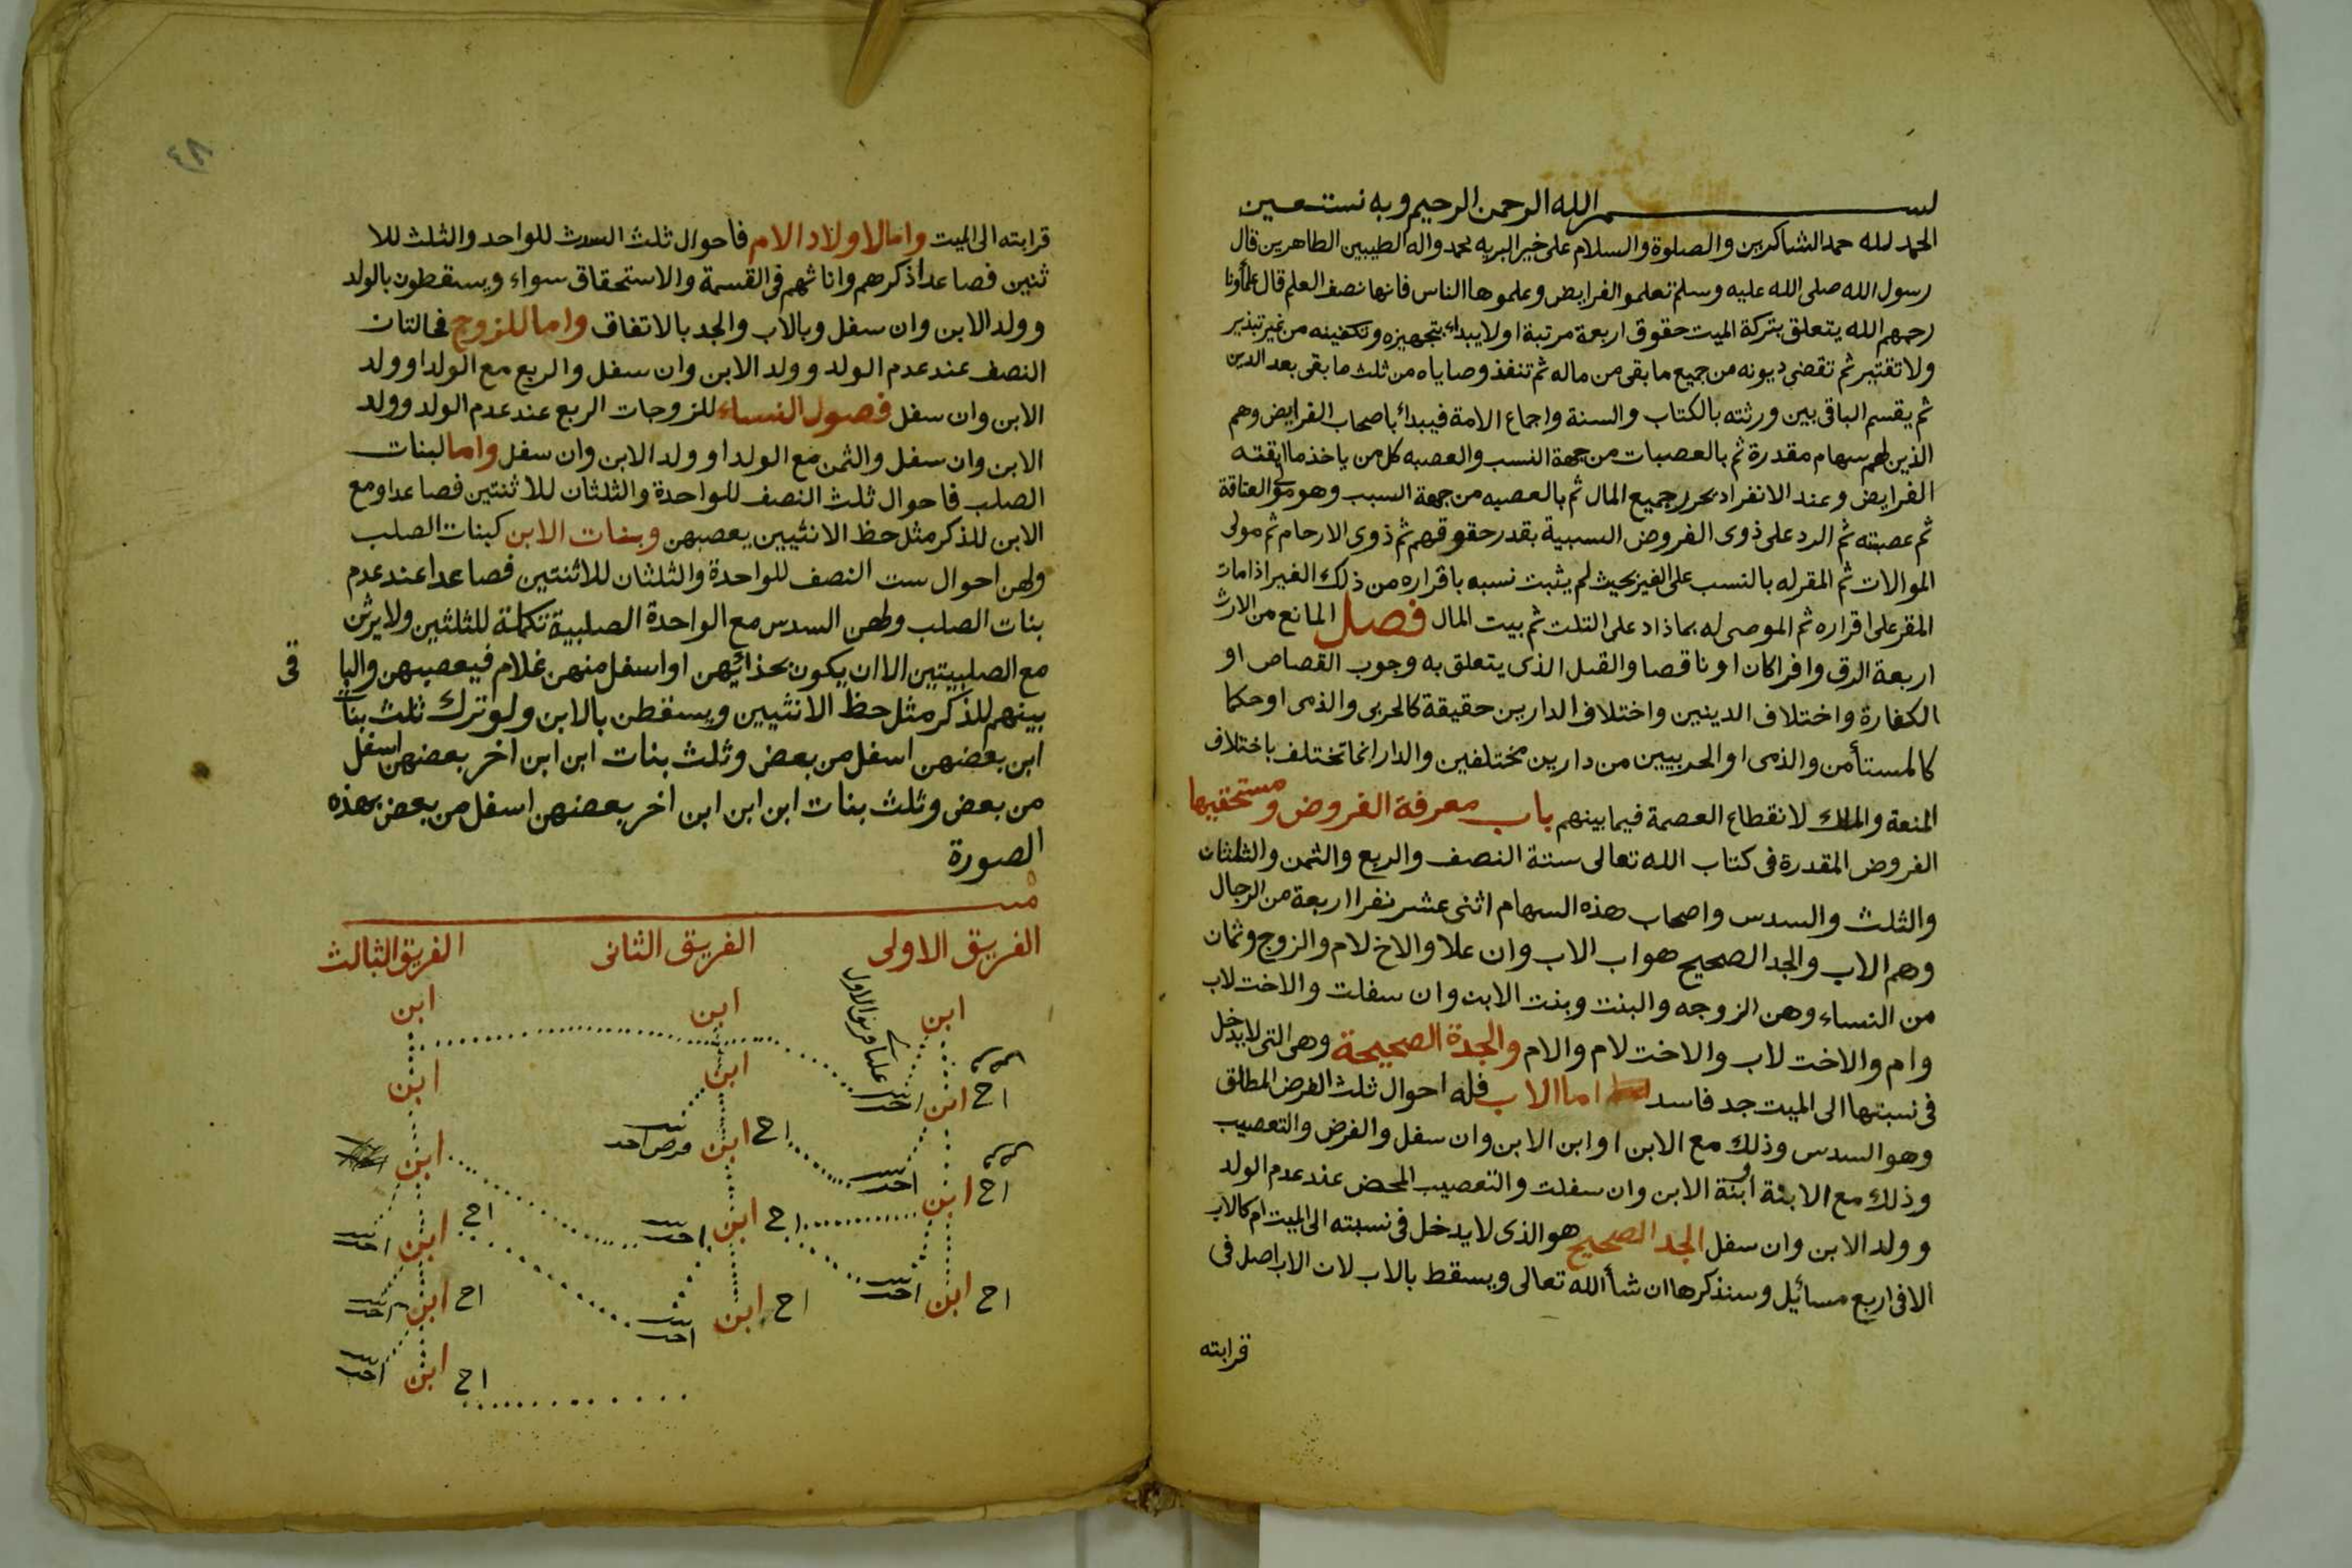 بسم الله الرحمن الرحيم وبه نستعين
الحمد لله حمد الشاكرين والصلوة والسلام على خير البريه محمد واله الطيبين الطاهرين قال
رسول الله صلى الله عليه وسلم تعلمو الفرايض وعلموها الناس فانها نصف العلم قال علماؤنا
رحمهم الله يتعلق بتركة الميت حقوق اربعة مرتبة اولا يبداء بتجهيزه وتكفينه من غير تبذير
ولا تقتير ثم تقضى ديونه من جميع ما بقى من ماله ثم تنفذ وصاياه من ثلث ما بقى بعد الدين
ثم يقسم الباقى بين ورثته بالكتاب والسنة واجماع الامة فيبدأ باصحاب الفرايض وهم
الذين لهم سهام مقدرة ثم بالعصبات من جهة النسب والعصبه كل من ياخذ ما ابقته
الفرايض وعند الانفراد يحرز جميع المال ثم بالعصبه من جهة السبب وهو مولى العتاقة
ثم عصبته ثم الرد على ذوى الفروض النسبية بقدر حقوقهم ثم ذوى الارحام ثم مولى
الموالات ثم المقر له بالنسب على الغير بحيث لم يثبت نسبه باقراره من ذلك الغير اذا مات
المقر على اقراره ثم الموصى له بما ذاد على التلت ثم بيت المال فصل المانع من الارث
اربعة الرق وافرا كان او ناقصا والقتل الذى يتعلق به وجوب القصاص او
الكفارة واختلاف الدينين واختلاف الدارين حقيقة كالحربى والذمى او حكما
كالمستأمن والذمى او الحربيين من دارين مختلفين والدار انما تختلف باختلاف
المنعة والملك لانقطاع العصمة فيما بينهم باب معرفة الفروض ومستحقيها
الفروض المقدرة فى كتاب الله تعالى ستة النصف والربع والثمن والثلثان
والثلث والسدس واصحاب هذه السهام اثنى عشر نفرا اربعة من الرجال
وهم الاب والجد الصحيح هو اب الاب وان علا والاخ لام والزوج وثمان
من النساء وهن الزوجه والبنت وبنت الابن وان سفلت والاخت لاب
وام والاخت لاب والاخت لام والام والجدة الصحيحة وهى التى لا يدخل
فى نسبتها الى الميت جد فاسد اما الاب فله احوال ثلث الفرض المطلق
وهو السدس وذلك مع الابن او ابن الابن وان سفل والفرض والتعصيب
وذلك مع الابنة او ابنة الابن وان سفلت والتعصيب المحض عند عدم الولد
وولد الابن وان سفل الجد الصحيح هو الذى لا يدخل فى نسبته الى الميت ام كالاب
الا فى اربع مسائيل وسنذكرها ان شأ الله تعالى ويسقط بالاب لان الاب اصل فى
قرابته
٤٨
قرابته الى الميت واما لاولاد الام فاحوال ثلث السدث للواحد والثلث للا
ثنين فصاعدا ذكرهم واناثهم فى القسمة والاستحقاق سواء ويسقطون بالولد
وولد الابن وان سفل وبالاب والجد بالاتفاق واما للزوج فحالتان
النصف عند عدم الولد وولد الابن وان سفل والربع مع الولد او ولد
الابن وان سفل فصول النساء للزوجات الربع عند عدم الولد وولد
الابن وان سفل والثمن مع الولد او ولد الابن وان سفل واما لبنات
الصلب فاحوال ثلث النصف للواحدة والثلثان للاثنتين فصاعدا ومع
الابن للذكر مثل حظ الانثيين يعصبهن وبنات الابن كبنات الصلب
ولهن احوال ست النصف للواحدة والثلثان للاثنتين فصاعدا عند عدم
بنات الصلب ولهن السدس مع الواحدة الصلبية تكملة للثلثين ولا يرثن
مع الصلبيتين الا ان يكون بحذائهن او اسفل منهن غلام فيعصبهن والبا
قى
بينهم للذكر مثل حظ الانثيين ويسقطن بالابن ولو ترك ثلث بنات
ابن بعضهن اسفل من بعض وثلث بنات ابن ابن اخر بعضهن اسفل
من بعض وثلث بنات ابن ابن ابن اخر بعضهن اسفل من بعض بهذه
الصورة
الفريق الاولى الفريق الثانى الفريق الثالث
ابن ابن ابن
اخ ابن ابن ابن
اخ ابن اخ ابن ابن
اخ ابن اخ ابن اخ ابن
اخ ابن اخ ابن
اخ ابن